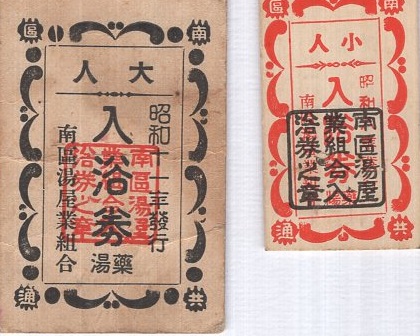 南區
大人
昭和十一年發行
入浴券
藥湯
南區湯屋業組合
南區湯屋
業組合入
浴券之章
共通
南區
小人
昭和
入浴券
南區湯屋
業組合入
浴券之章
共通